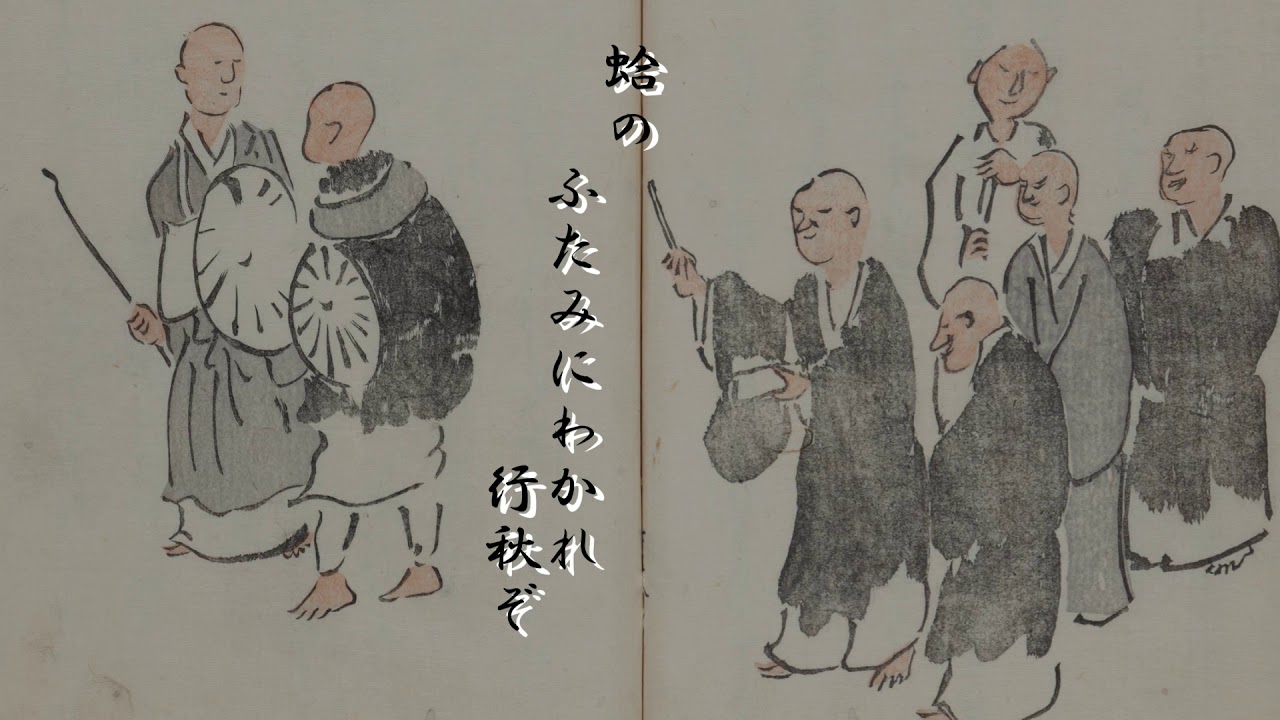 蛤の
ふたみにわかれ
行秋ぞ